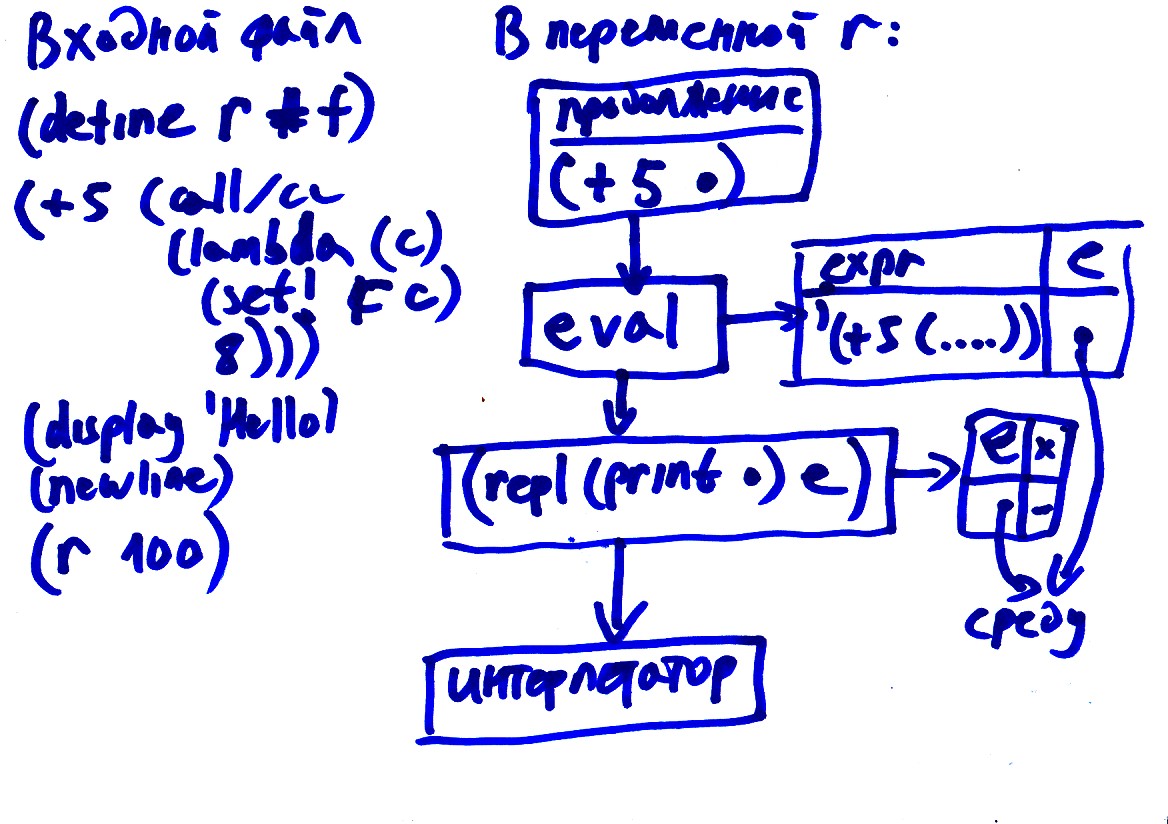 Входной файл
(define r #f)
(+5 (call/cc
(lambda (c)
(set! r c)
8)))
(display 'Hello)
(newline)
(r 100)
В переменной r:
продолжение
(+ 5 •)
eval
expr e
'(+5 (....)) •
(repl (print •) e)
e x
• -
среду
интерпретатор